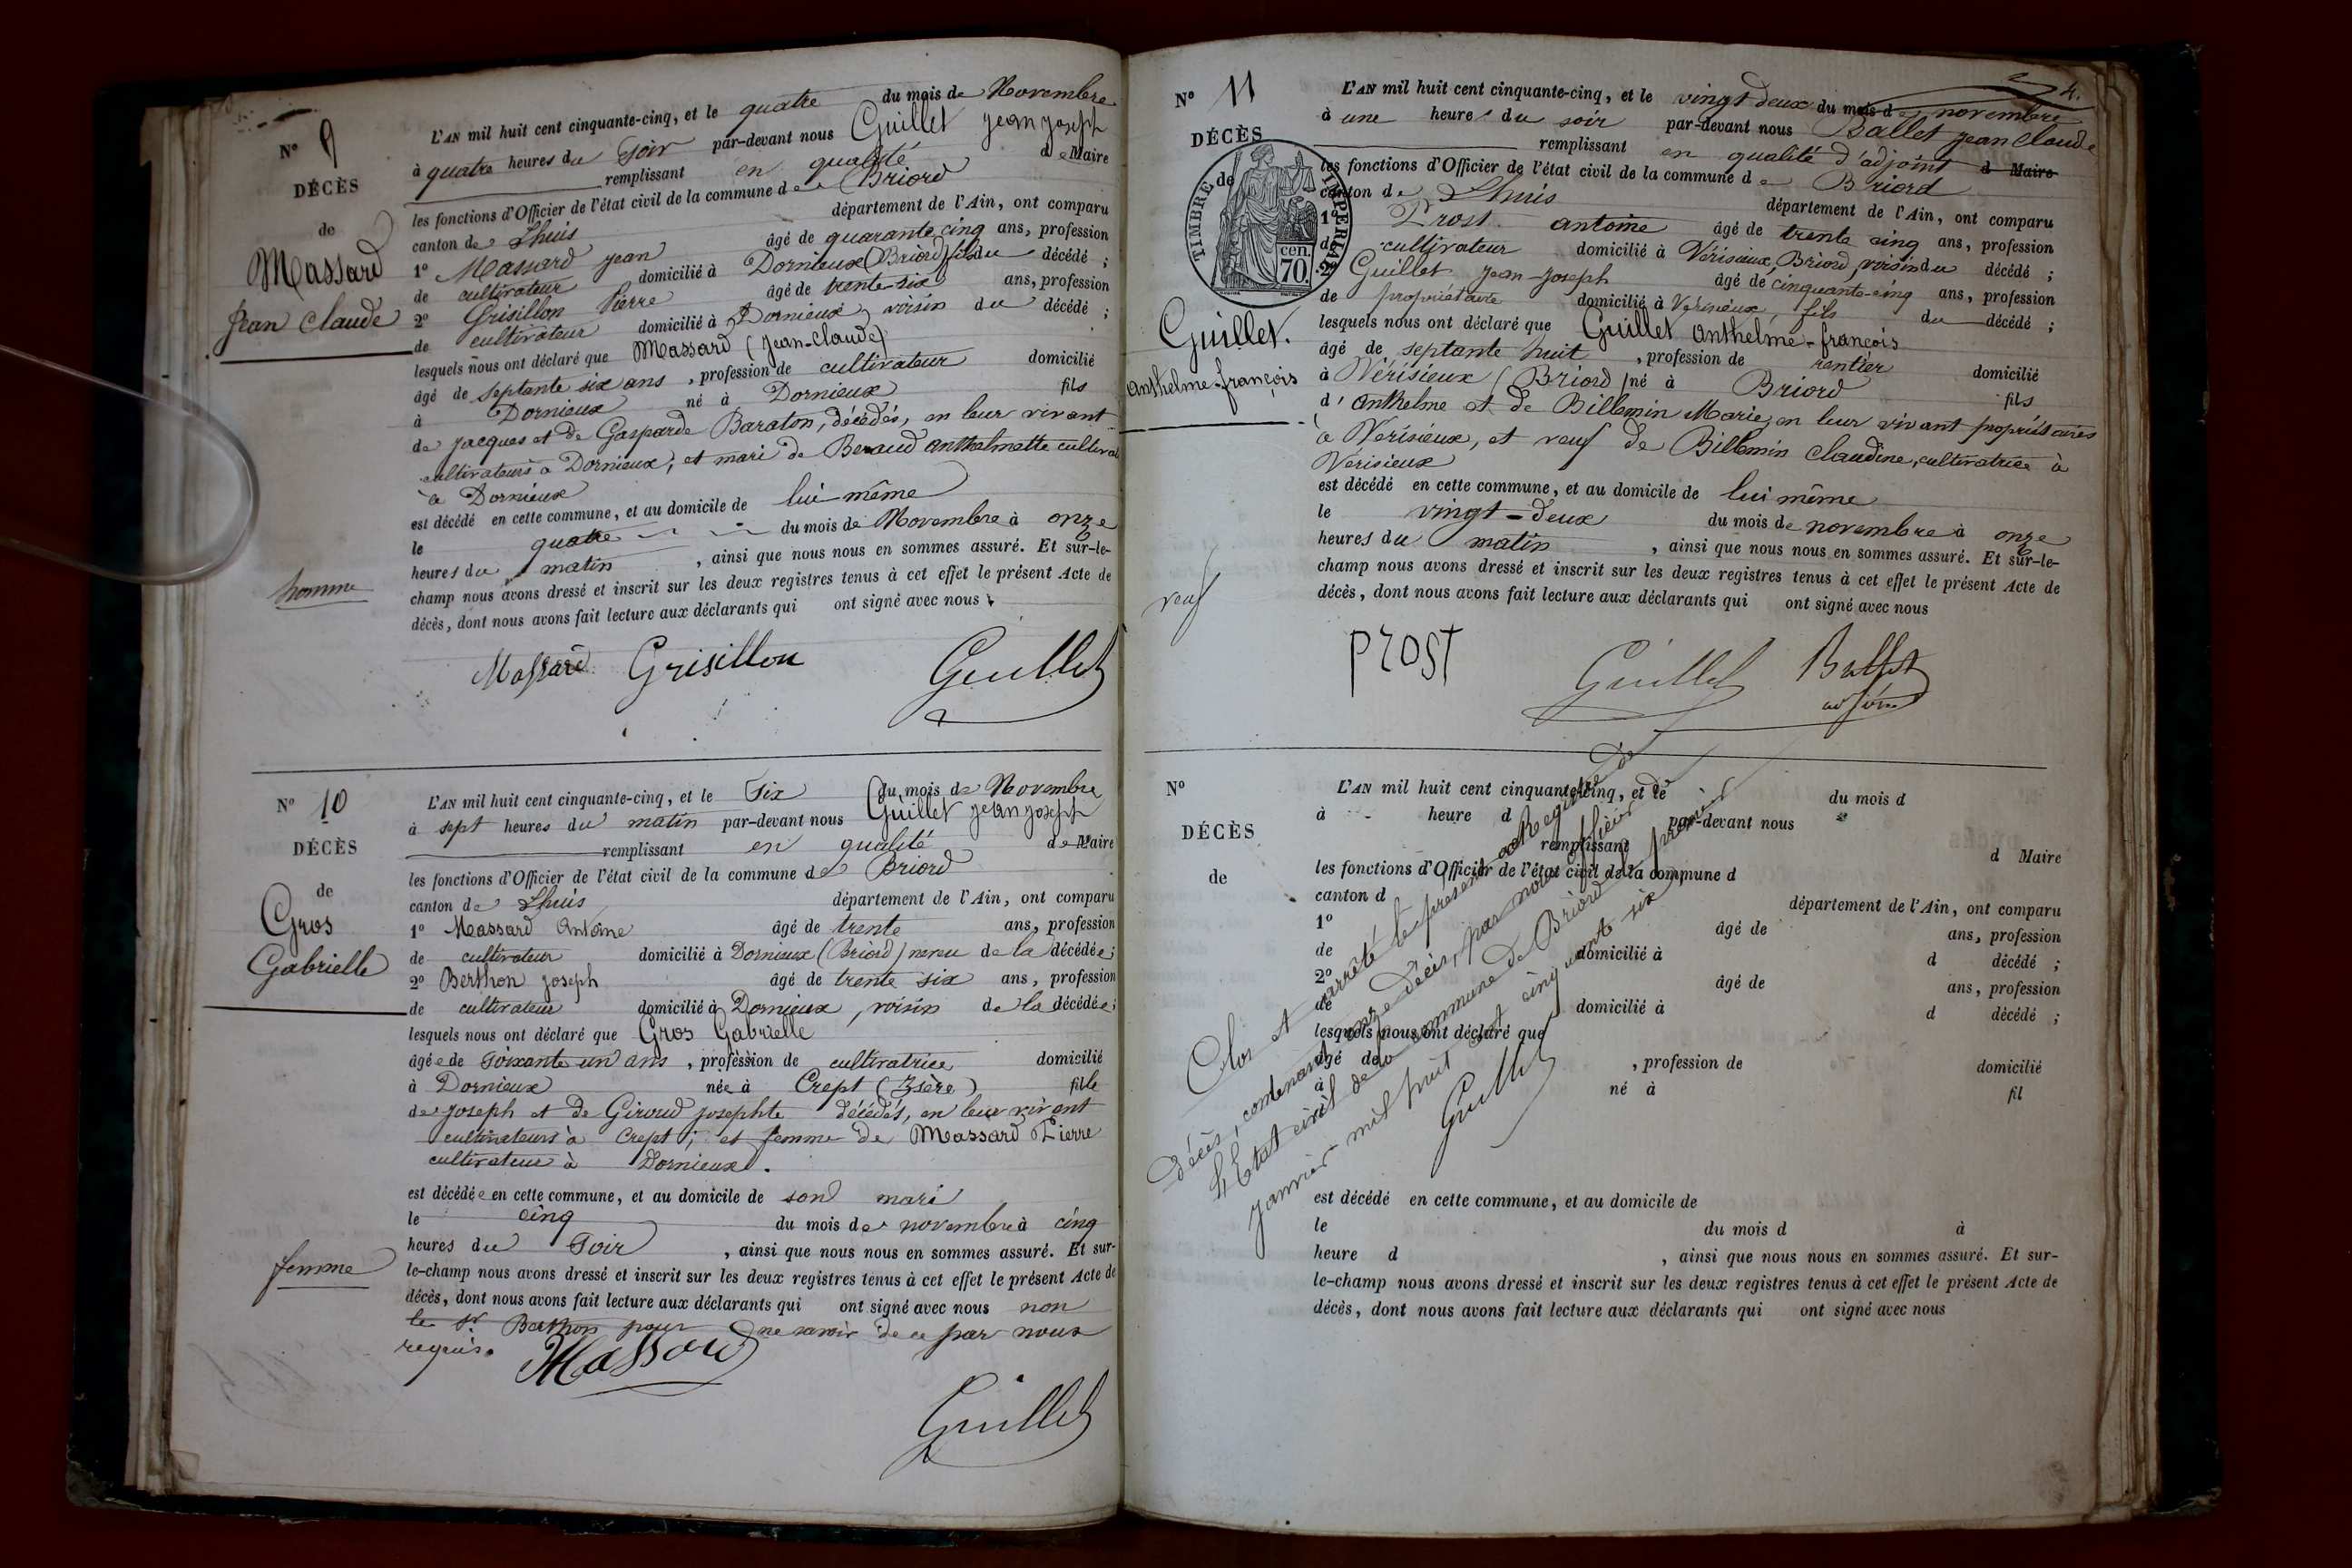 N° 9
DÉCÈS
de
Massard
Jean Claude
homme
L'AN mil huit cent cinquante-cinq, et le quatre du mois de Novembre
à quatre heures du Soir par-devant nous Guillet Jean Joseph
remplissant en qualité de Maire
les fonctions d'Officier de l'état civil de la commune de Briord
canton de Lhuis département de l'Ain, ont comparu
1° Massard Jean âgé de quarante cinq ans, profession
de cultivateur domicilié à Dornieux (Briord) fils du décédé ;
2° Grisillon Pierre âgé de trente-six ans, profession
de cultivateur domicilié à Dornieux, voisin du décédé ;
lesquels nous ont déclaré que Massard (Jean-Claude)
âgé de septante six ans, profession de cultivateur domicilié
à Dornieux né à Dornieux fils
de Jacques et de Gasparde Baraton, décédés, en leur vivant
cultivateurs à Dornieux, et mari de Beraud Anthelmette
à Dornieux
est décédé en cette commune, et au domicile de lui-même
le quatre du mois de Novembre à onze
heures du matin, ainsi que nous nous en sommes assuré. Et sur-le-
champ nous avons dressé et inscrit sur les deux registres tenus à cet effet le présent Acte de
décès, dont nous avons fait lecture aux déclarants qui ont signé avec nous.
Massard Grisillon Guillet
N° 10
DÉCÈS
de
Gros
Gabrielle
femme
L'AN mil huit cent cinquante-cinq, et le Six du mois de Novembre
à sept heures du matin par-devant nous Guillet Jean Joseph
remplissant en qualité de Maire
les fonctions d'Officier de l'état civil de la commune de Briord
canton de Lhuis département de l'Ain, ont comparu
1° Massard Antoine âgé de trente ans, profession
de cultivateur domicilié à Dornieux (Briord) neveu de la décédée;
2° Berthon Joseph âgé de trente six ans, profession
de cultivateur domicilié à Dornieux, voisin de la décédée;
lesquels nous ont déclaré que Gros Gabrielle
âgée de soixante un ans, profession de cultivatrice domicilié
à Dornieux née à Crept (Isère) fille
de Joseph et de Giroud Josephte décédés, en leur vivant
cultivateurs à Crept ; et femme de Massard Pierre
cultivateur à Dornieux.
est décédée en cette commune, et au domicile de son mari
le cinq du mois de novembre à cinq
heures du Soir, ainsi que nous nous en sommes assuré. Et sur-
le-champ nous avons dressé et inscrit sur les deux registres tenus à cet effet le présent Acte de
décès, dont nous avons fait lecture aux déclarants qui ont signé avec nous non
le Sr Berthon pour ne savoir de ce par nous
requis.
Massard
Guillet
4.
N° 11
DÉCÈS
de
TIMBRE IMPERIAL
70 cen.
Guillet.
Anthelme-françois
veuf
L'AN mil huit cent cinquante-cinq, et le vingt deux du mois de novembre
à une heure du soir par-devant nous Ballet Jean Claude
remplissant en qualité d'adjoint d Maire
les fonctions d'Officier de l'état civil de la commune de Briord
canton de Lhuis département de l'Ain, ont comparu
1° Prost antoine âgé de trente cinq ans, profession
de cultivateur domicilié à Vérisieux, Briord, voisin du décédé ;
2° Guillet Jean-Joseph âgé de cinquante-cinq ans, profession
de propriétaire domicilié à Vérisieux, fils du décédé ;
lesquels nous ont déclaré que Guillet Anthelme-françois
âgé de septante huit, profession de rentier domicilié
à Vérisieux (Briord) né à Briord fils
d'Anthelme et de Billemin Marie, en leur vivant propriétaires
à Vérisieux, et veuf de Billemin Claudine, cultivatrice à
Vérisieux
est décédé en cette commune, et au domicile de lui même
le vingt-deux du mois de novembre à onze
heures du matin, ainsi que nous nous en sommes assuré. Et sur-le-
champ nous avons dressé et inscrit sur les deux registres tenus à cet effet le présent Acte de
décès, dont nous avons fait lecture aux déclarants qui ont signé avec nous
PROST Guillet Ballet
adjoint
N°
DÉCÈS
de
L'AN mil huit cent cinquante-cinq, et le du mois d
à heure d par-devant nous
remplissant d Maire
les fonctions d'Officier de l'état civil de la commune d
canton d département de l'Ain, ont comparu
1° âgé de ans, profession
de domicilié à d décédé ;
2° âgé de ans, profession
de domicilié à d décédé ;
lesquels nous ont déclaré que
âgé de, profession de domicilié
à né à fil
est décédé en cette commune, et au domicile de
le du mois d à
heure d, ainsi que nous nous en sommes assuré. Et sur-
le-champ nous avons dressé et inscrit sur les deux registres tenus à cet effet le présent Acte de
décès, dont nous avons fait lecture aux déclarants qui ont signé avec nous
Clos et arrêté le présent Registre de
décès, contenant onze décès, par nous officier
de l'Etat civil de la commune de Briord le premier
janvier mil huit cent cinquante six
Guillet